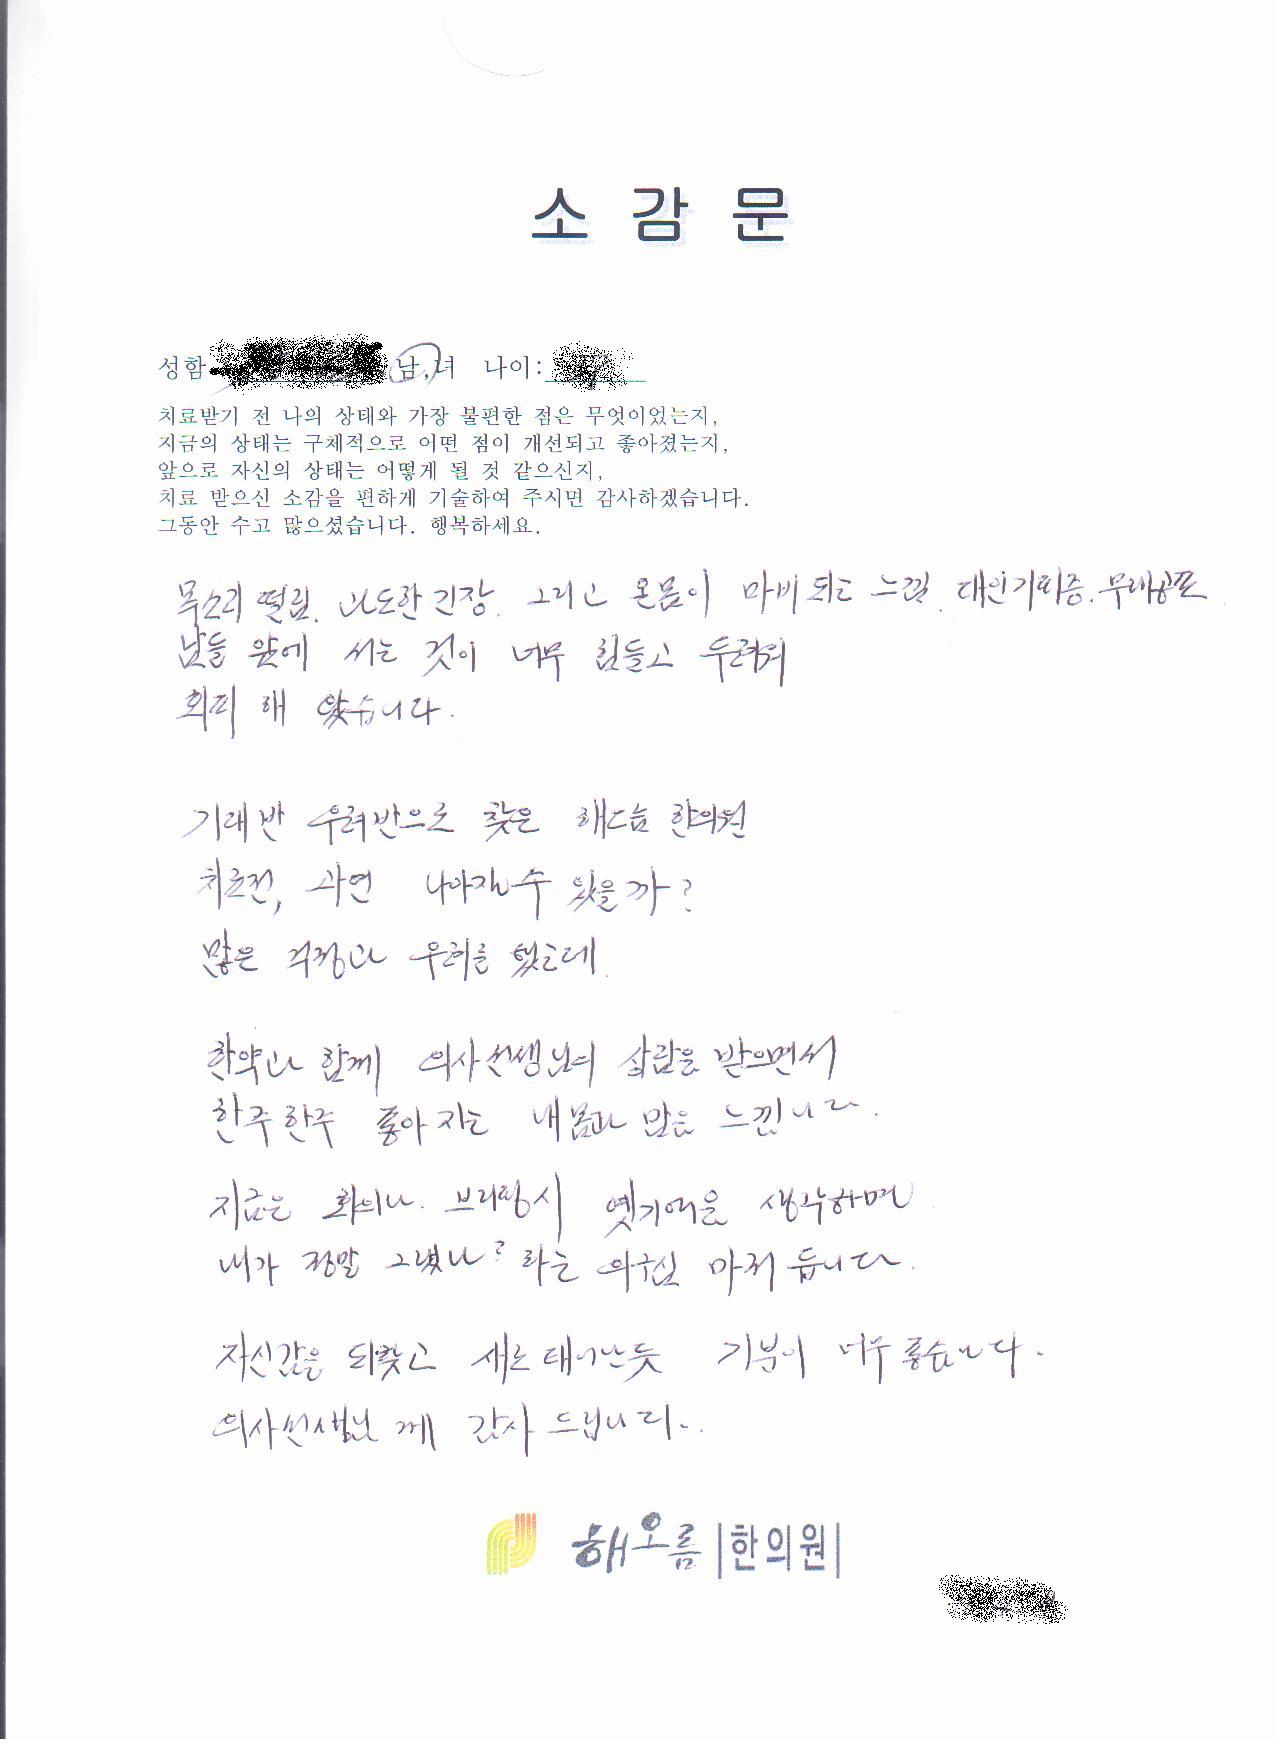 소 감 문
성함 남,녀 나이:
치료받기 전 나의 상태와 가장 불편한 점은 무엇이었는지,
지금의 상태는 구체적으로 어떤 점이 개선되고 좋아졌는지,
앞으로 자신의 상태는 어떻게 될 것 같으신지,
치료 받으신 소감을 편하게 기술하여 주시면 감사하겠습니다.
그동안 수고 많으셨습니다. 행복하세요.
목소리 떨림. 과도한 긴장. 그리고 온몸이 마비되는 느낌. 대인기피증. 무대공포
남들 앞에 서는 것이 너무 힘들고 두려워
회피 해 왔습니다.
기대반 우려반으로 찾은 해오름 한의원
치료전, 과연 나아질수 있을까?
많은 걱정과 우려를 했는데.
한약과 함께 의사선생님의 상담을 받으면서
한주한주 좋아지는 내 몸과 맘을 느낍니다.
지금은 회의나. 브리핑시 옛기억을 생각하면
내가 정말 그랬나? 라는 의구심 마저 듭니다.
자신감을 되찾고 새로 태어난듯 기분이 너무 좋습니다.
의사선생님 께 감사 드립니다..
해오름 |한의원|